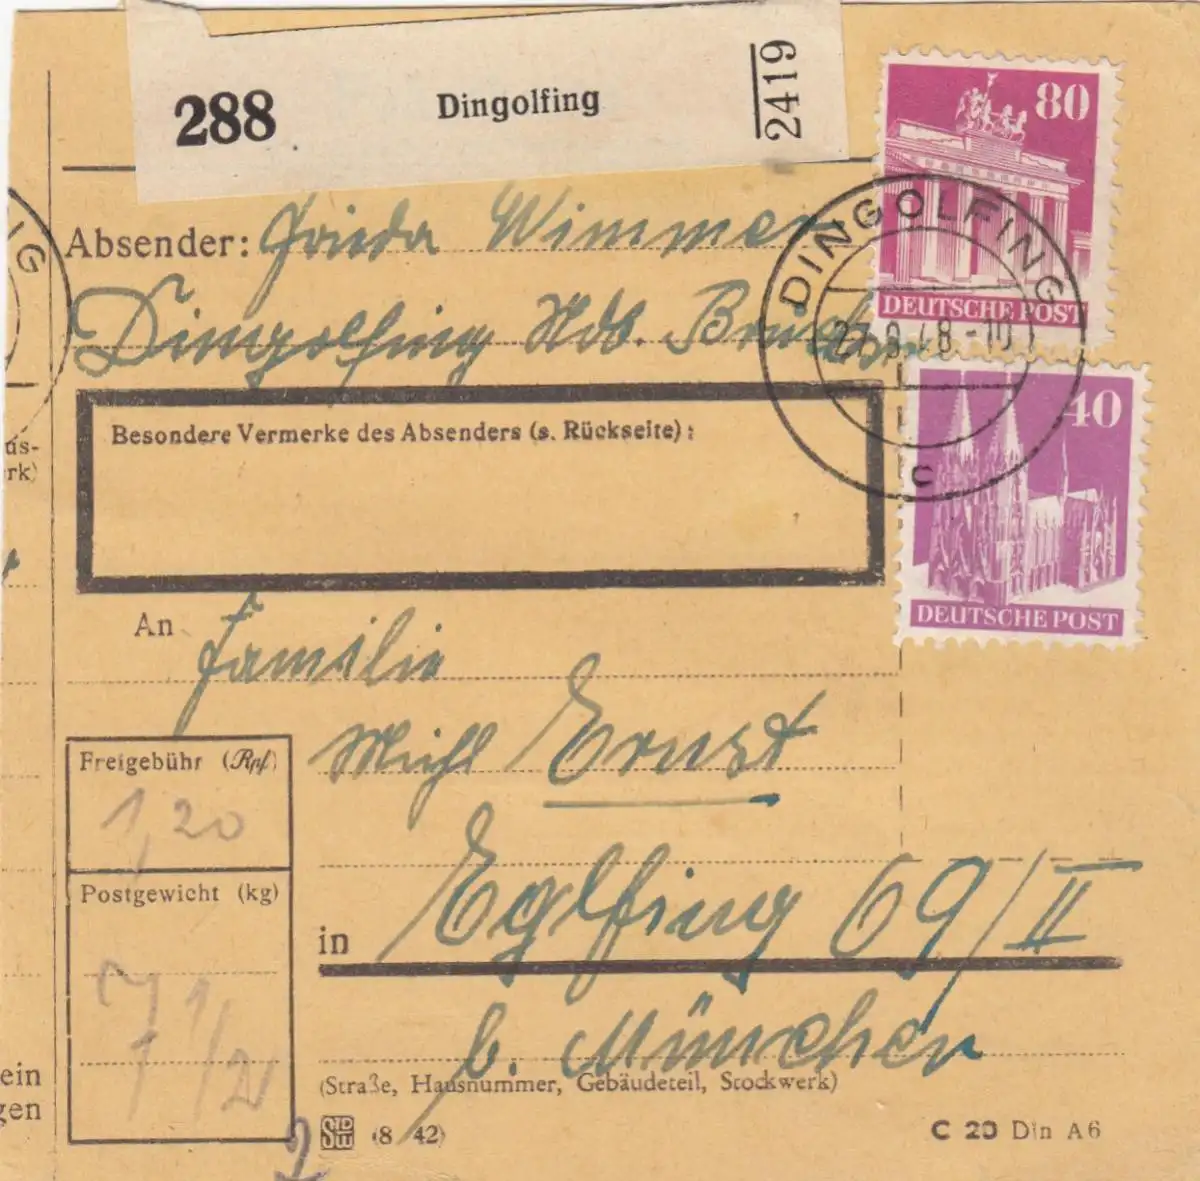 288 Dingolfing 2419
80
DEUTSCHE POST
Absender: Frieda Wimmer
Dingolfing Ndb.
DINGOLFING
-10
c
40
DEUTSCHE POST
IG
us-
rk)
Besondere Vermerke des Absenders (s. Rückseite):
An Familie
Michl Ernst
Freigebühr (Rpf)
1,20
Postgewicht (kg)
7 1/2
in Eglfing 69/II
b. München
(Straße, Hausnummer, Gebäudeteil, Stockwerk)
ein
gen
(8 42)
C 20 Din A6